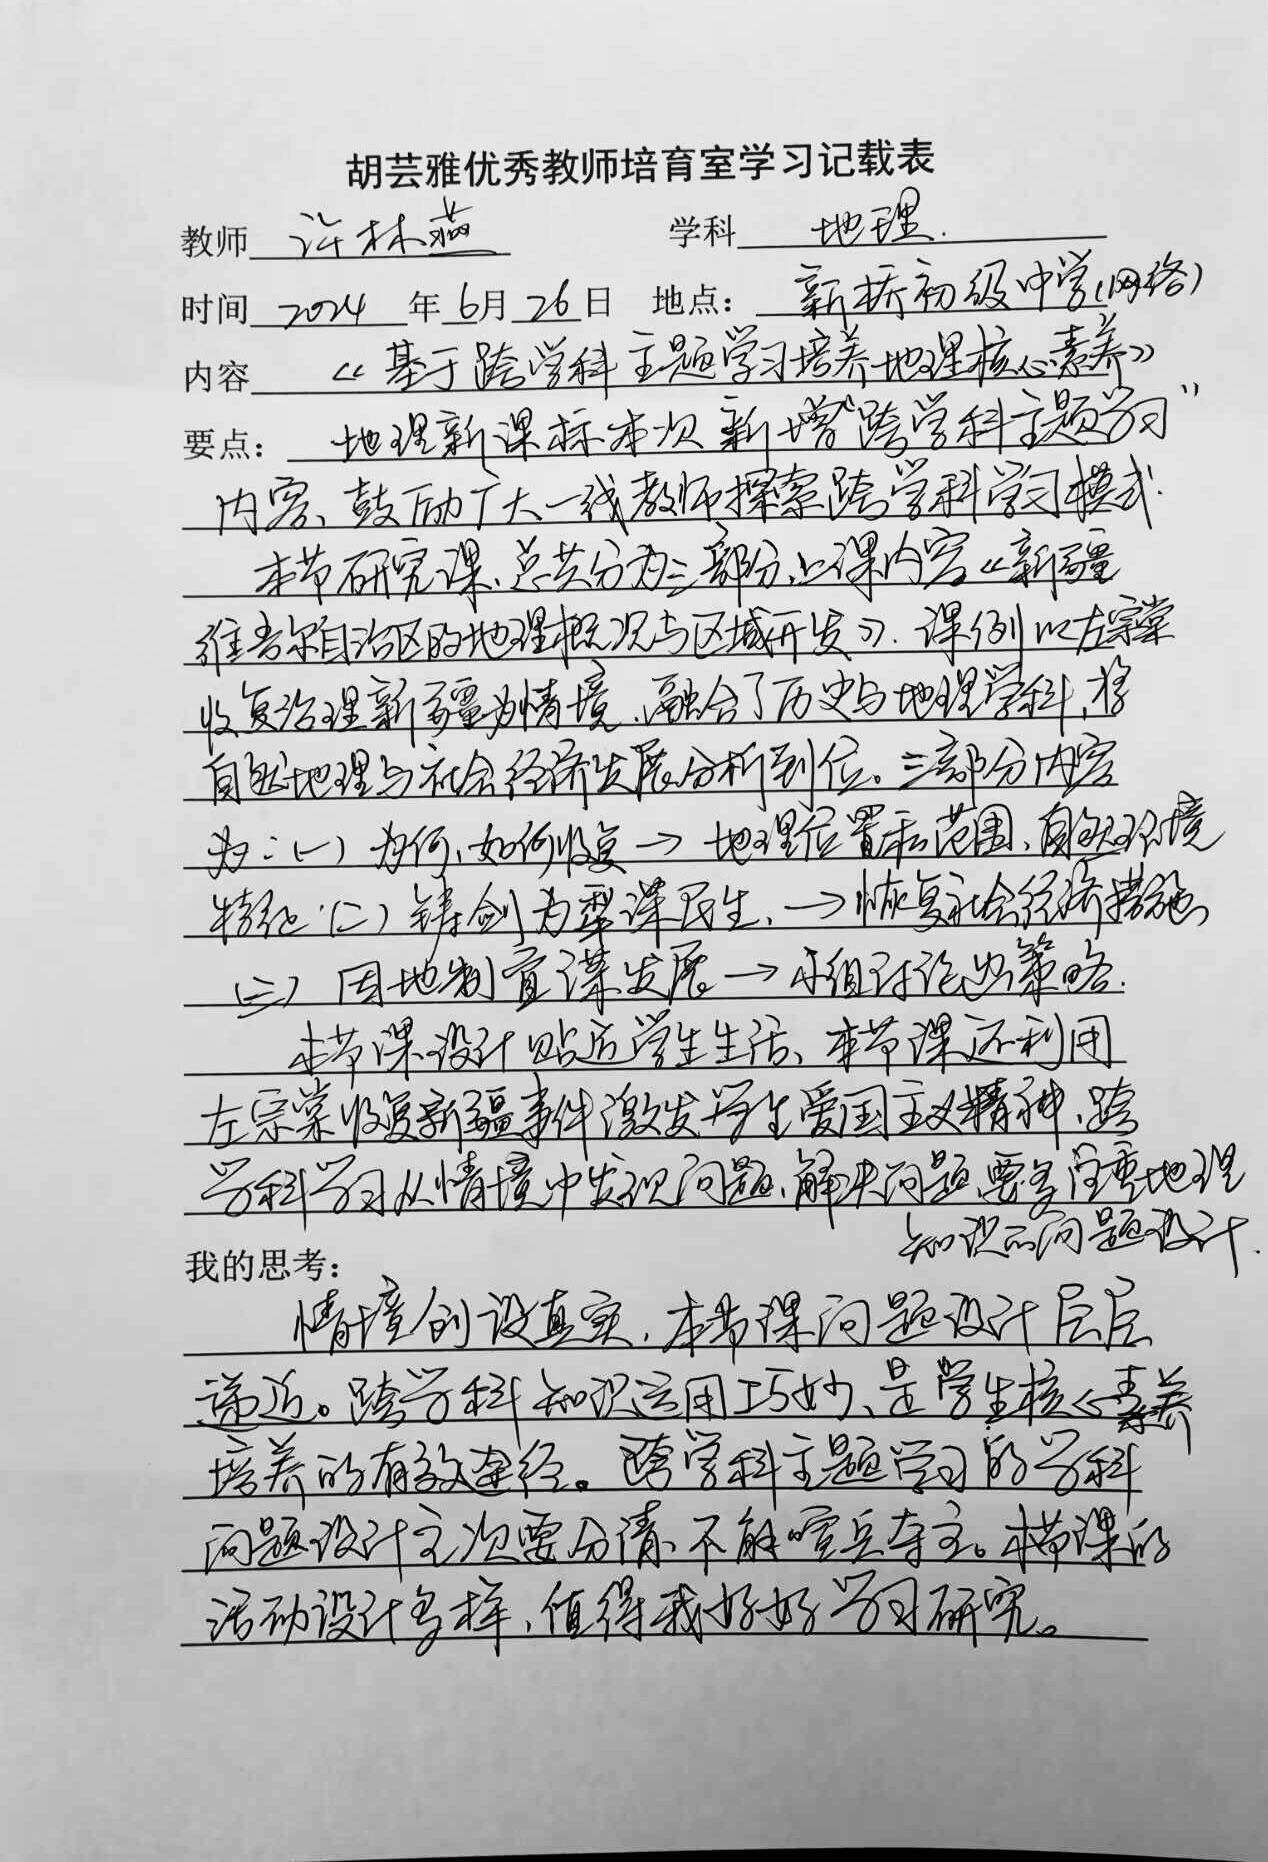 胡芸雅优秀教师培育室学习记载表
教师 许林燕 学科 地理.
时间 2024 年 6月 26日 地点: 新桥初级中学(网络)
内容 《基于跨学科主题学习培养地理核心素养》
要点: 地理新课标本次新增“跨学科主题学习”
内容、鼓励广大一线教师探索跨学科学习模式.
本节研究课、总共分为三部分、上课内容《新疆
维吾尔自治区的地理概况与区域开发》. 课例以左宗棠
收复治理新疆为情境、融合了历史与地理学科,将
自然地理与社会经济发展分析到位。三部分内容
为:(一) 为何、如何收复→地理位置和范围、自然环境
特征.(二) 铸剑为犁谋民生、→恢复社会经济措施,
(三) 因地制宜谋发展→小组讨论出策略.
本节课设计贴近学生生活、本节课还利用
左宗棠收复新疆事件激发学生爱国主义精神、跨
学科学习从情境中发现问题、解决问题、要多注重地理
知识的问题设计.
我的思考:
情境创设真实、本节课问题设计层层
递近。跨学科知识运用巧妙、是学生核心素养
培养的有效途径。跨学科主题学习的学科
问题设计主次要分清、不能喧兵夺主。本节课的
活动设计多样,值得我好好学习研究。